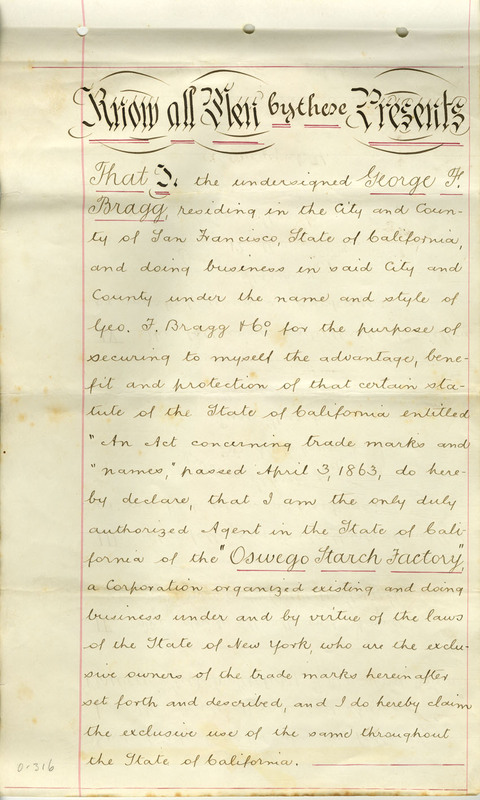 Know all Men by these Presents
That I, the undersigned George F.
Bragg, residing in the City and Coun-
ty of San Francisco, State of California,
and doing business in said City and
County under the name and style of
Geo. F. Bragg & Co, for the purpose of
securing to myself the advantage, bene-
fit and protection of that certain sta-
tute of the State of California entitled
"An Act concerning trade marks and
"names," passed April 3, 1863, do here-
by declare, that I am the only duly
authorized Agent in the State of Cali-
fornia of the "Oswego Starch Factory",
a Corporation organized existing and doing
business under and by virtue of the laws
of the State of New York, who are the exclu-
sive owners of the trade marks hereinafter
set forth and described, and I do hereby claim
the exclusive use of the same throughout
the State of California.
0-316